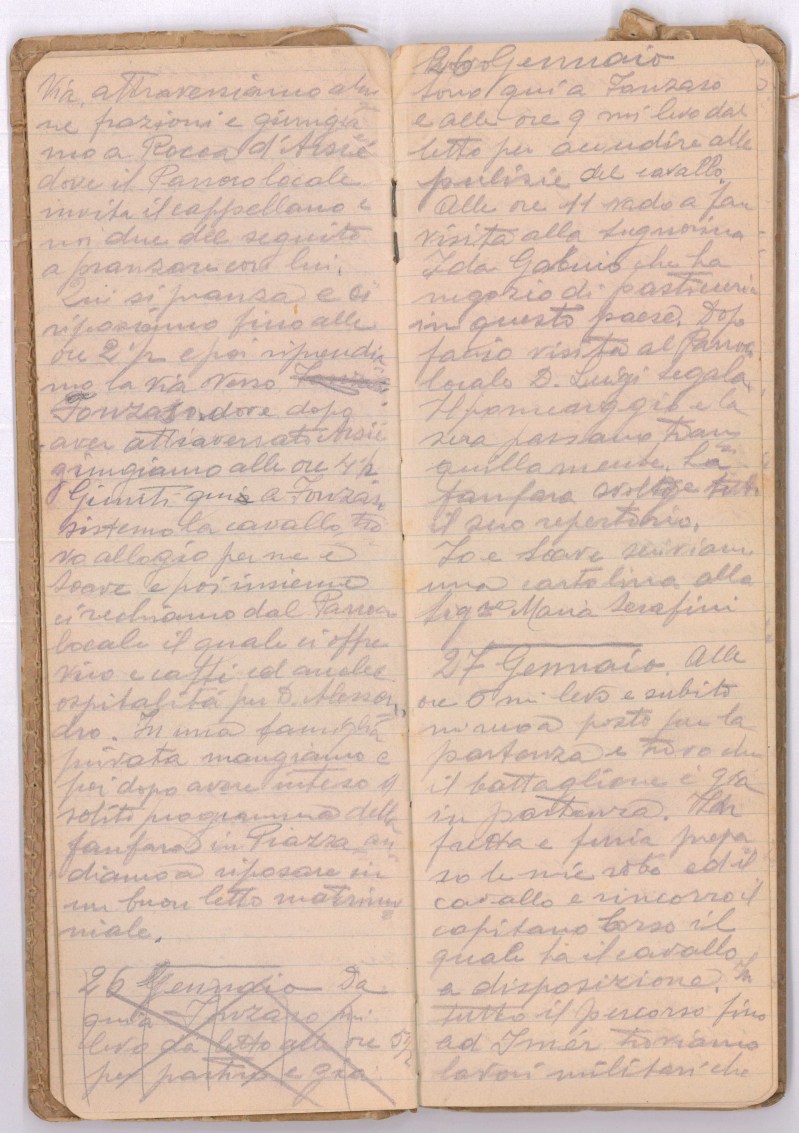 Via, attraversiamo alcu
ne frazioni e giungia
mo a Rocca d'Arsié
dove il Parroco locale
invita il cappellano e
noi due del seguito
a pranzare con lui.
Qui si pranza e ci
riposiamo fino alle
ore 2 1/2 e poi riprendia
mo la via verso
Fonzaso dove dopo
aver attraversato Arsié
giungiamo alle ore 4 1/2
Giunti qui a Fonzaso
sistemo la cavallo tro
vo allogio per me e
Soave e poi insieme
ci rechiamo dal Parroco
locale il quale ci offre
vino e caffi ed anche
ospitalitá per D. Alessan
dro. In una famiglia
privata mangiamo e
poi dopo avere inteso il
solito programma della
fanfara in Piazza an
diamo a riposare in
un buon letto matrimo
niale.
26 Gennaio Da
qui a Fonzaso mi
levo da letto alle ore 5 1/2
per partire e già
26 Gennaio
Sono qui a Fonzaso
e alle ore 9 mi levo dal
letto per accudire alle
pulizie del cavallo.
Alle ore 11 vado a far
visita alla Signorina
Ida che ha
negozio di pasticceria
in questo paese. Dopo
facio visita al Parroco
locale D. Luigi Segala
Il pomeriggio e la
sera passano tran
quillamente. La
fanfara svolge tutto
il suo repertorio.
Io e Soave scriviamo
una cartolina alla
Sig.ne Maria Serafini
27 Gennaio. Alle
ore 6 mi levo e subito
mi reco a posto per la
partenza e trovo che
il battaglione è già
in partenza. In
fretta e furia prepa
ro le mie robe ed il
cavallo e rincorro il
capitano Corso il
quale ha il cavallo
a disposizione. In
tutto il percorso fino
ad Imér troviamo
lavori militari che